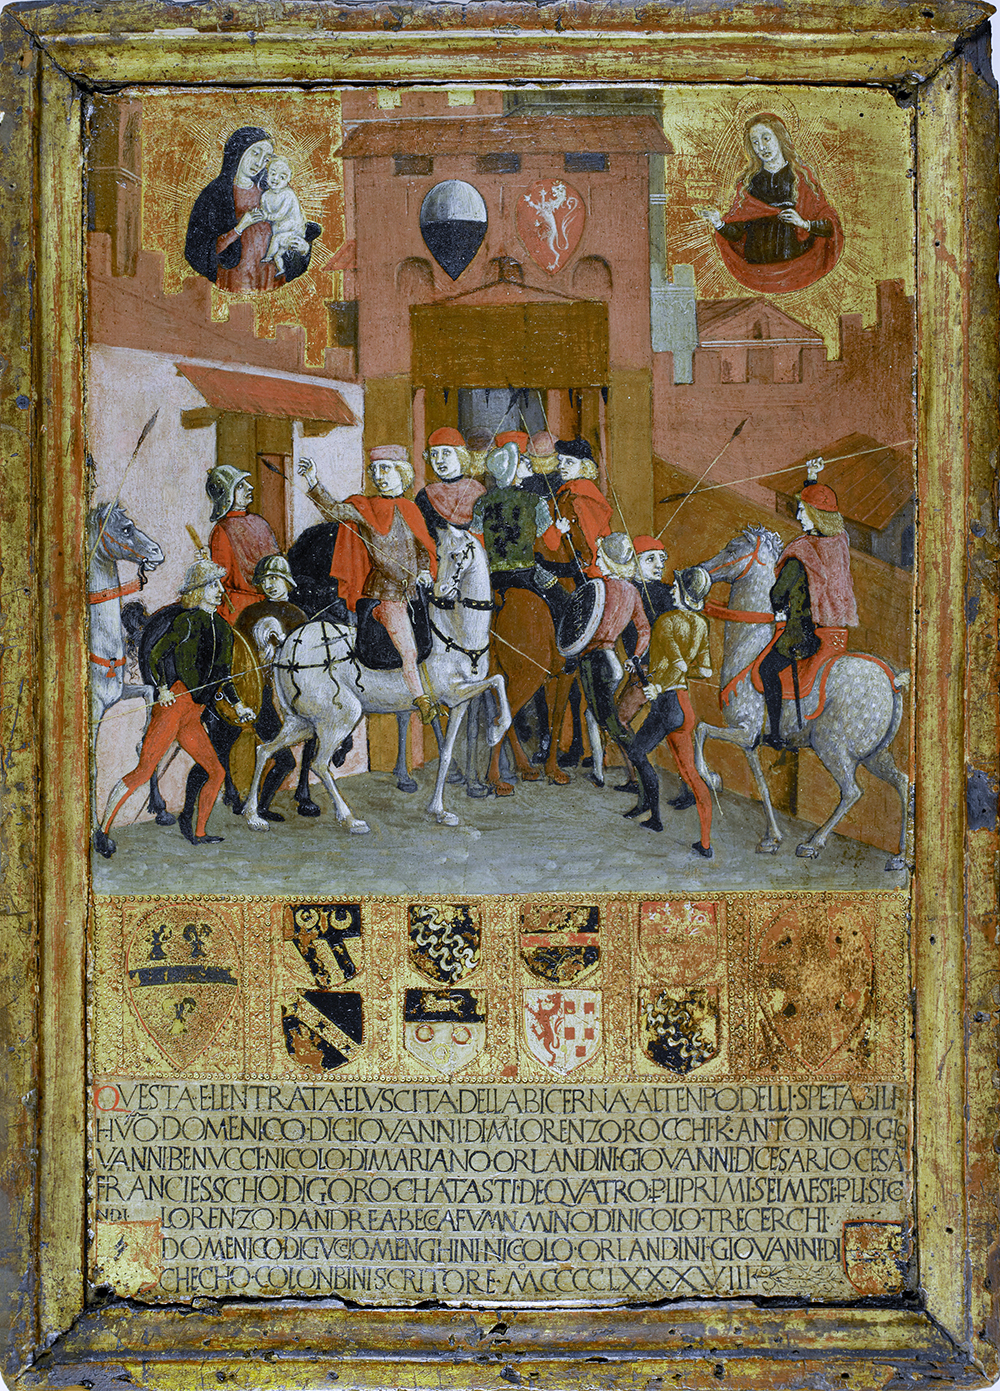 QVESTA·E·LENTRATA·E·LVSCITA·DELLA·BICERNA·AL·TENPO·DELLI·SPETABILI
HVŌ·DOMENICO·DI·GIOVANNI·DI·M·LORENZO·ROCCHI·K·ANTONIO·DI·GIO
VANNI·BENVCCI·NICOLO·DI·MARIANO·ORLANDINI·GIOVANNI·DI·CESARIO·CESA
FRANCIESSCHO·DI·GORO·CHATASTI·DE·QVATRO·PLI·PRIMI·SEI·MESI·PLI·SICO
NDI· LORENZO·DANDREA·BECCAFVMI·MINO·DI·NICOLO·TRECERCHI·
DOMENICO·DI·GVCCIO·MENGHINI·NICCOLO·ORLANDINI·GIOVANNI·DI
CHECHO·COLONBINI·SCRITORE·MCCCCLXXXVIII